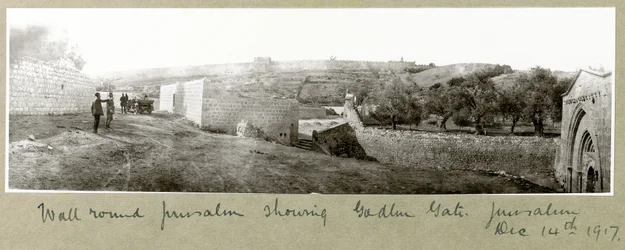 Wall round Jerusalem showing Godlen Gate. Jerusalem
Dec 14th 1917.